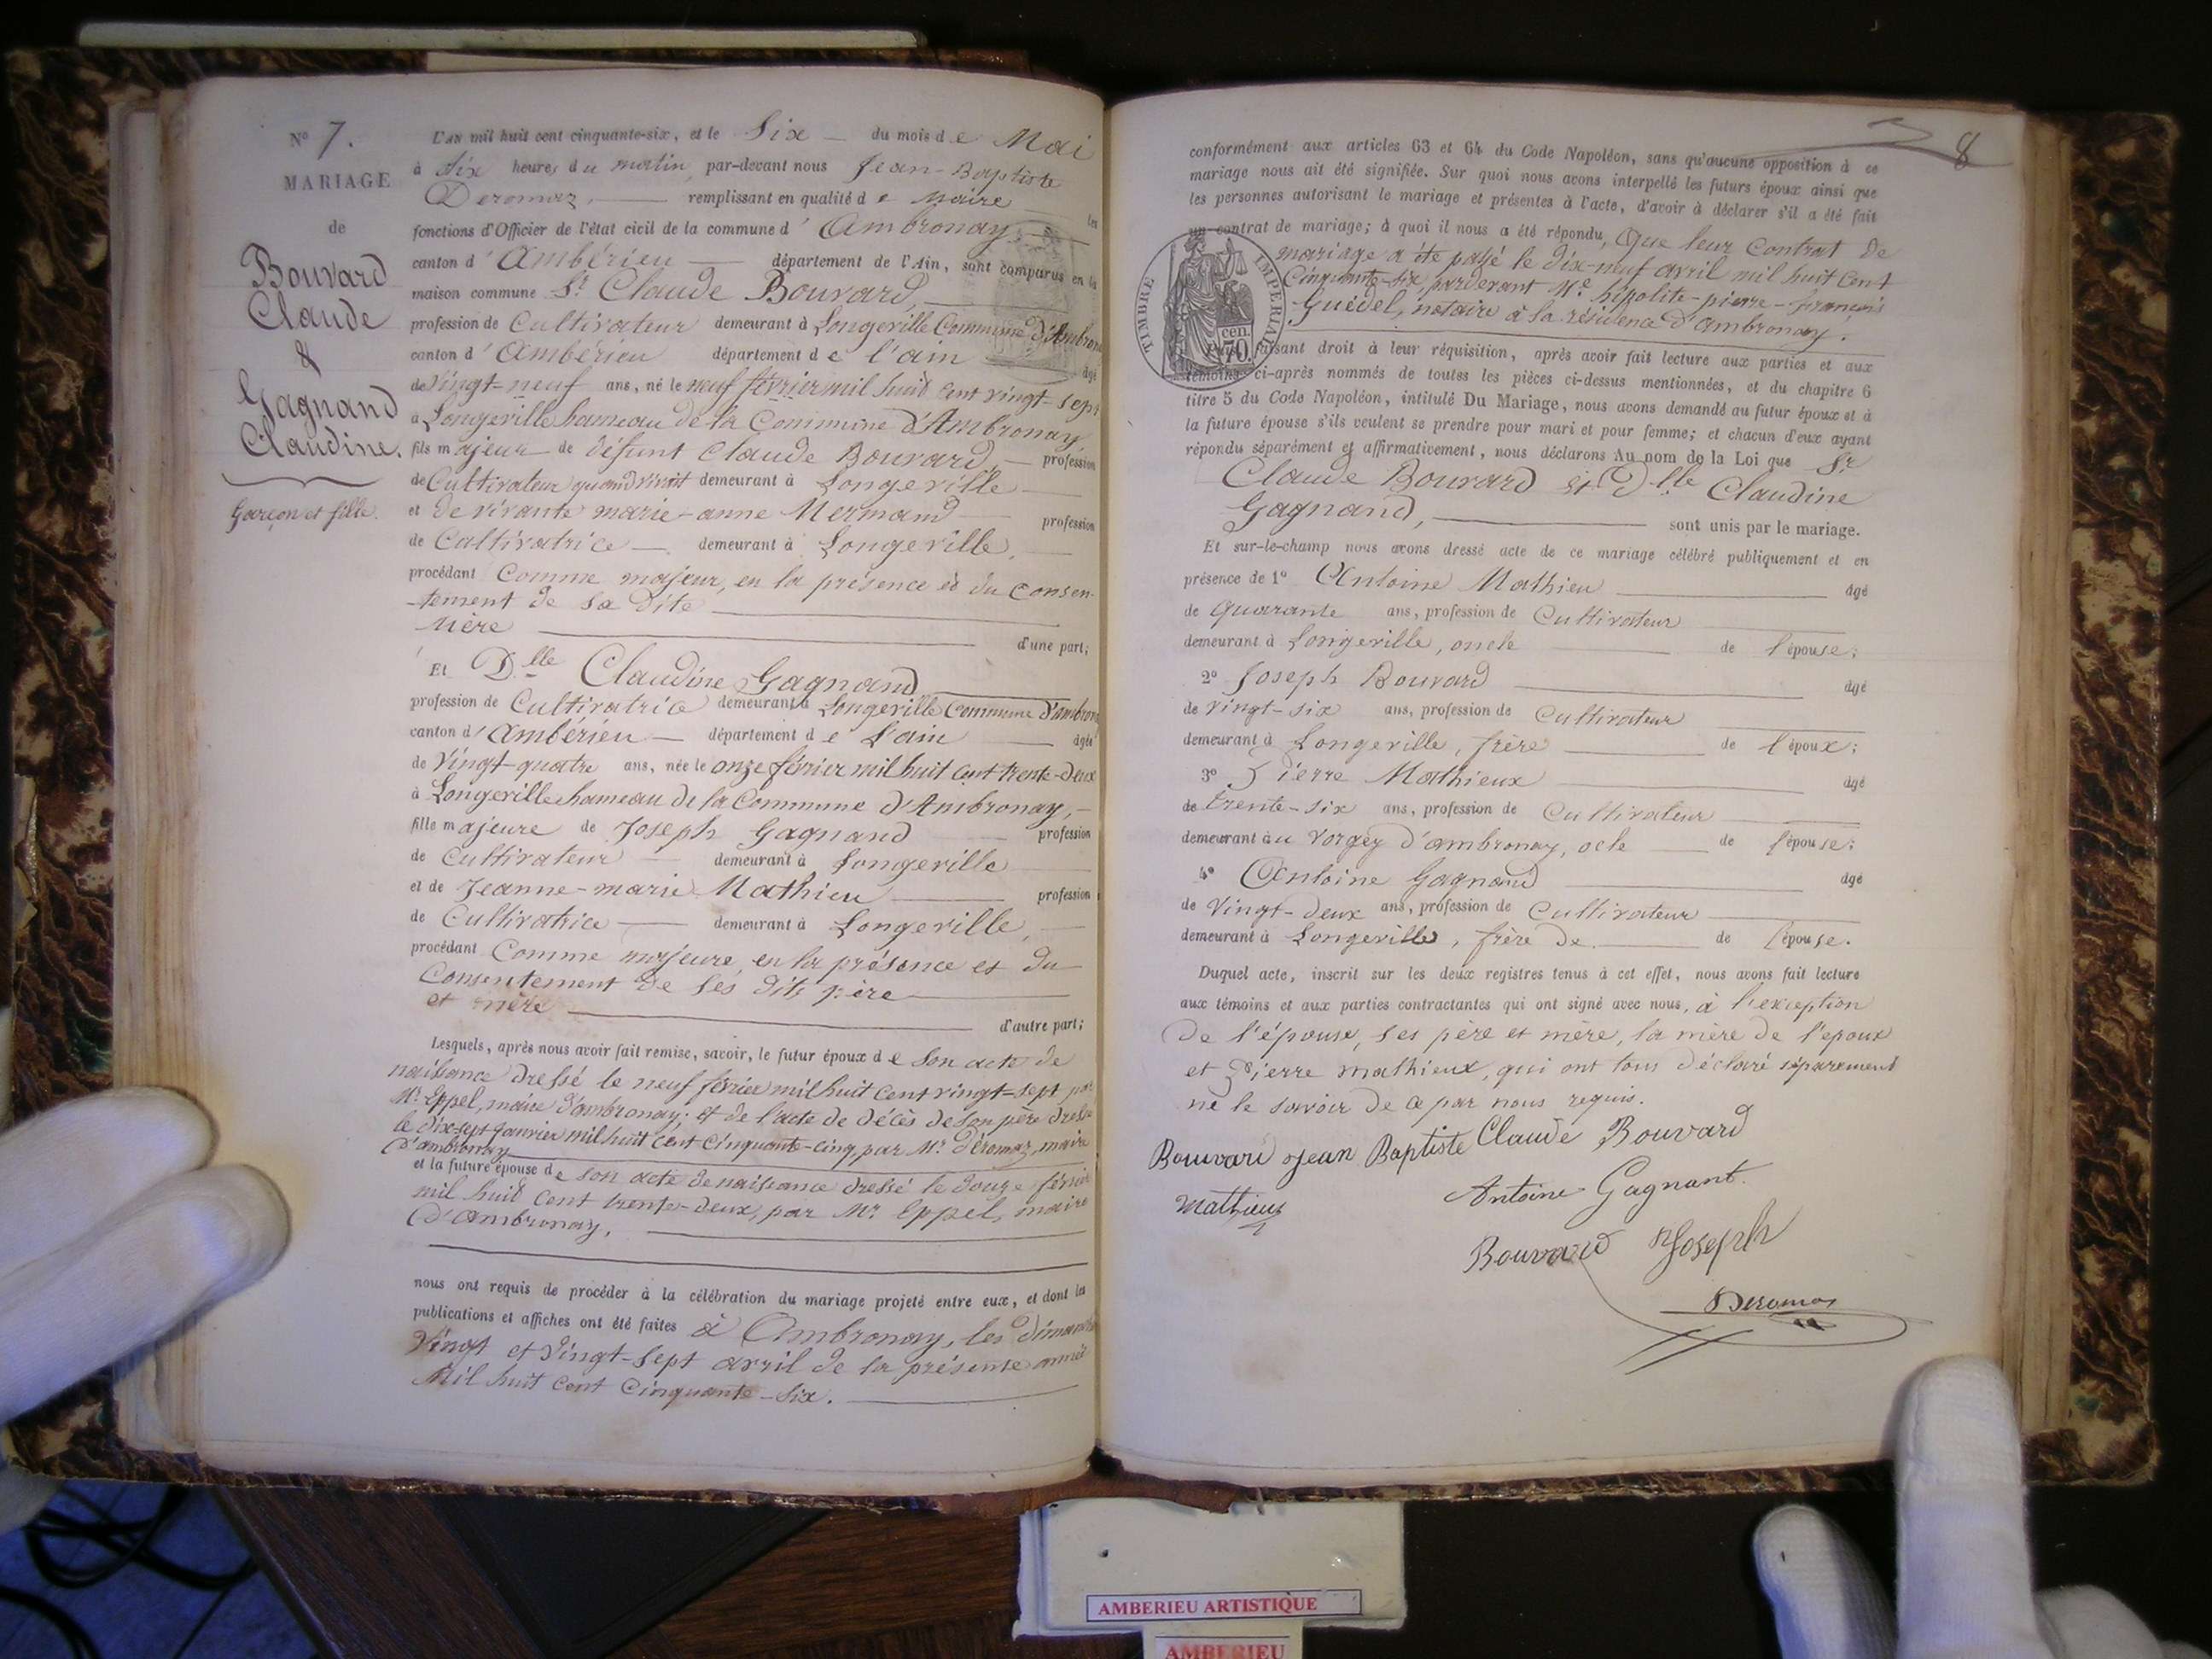 N° 7.
MARIAGE
de
Bouvard
Claude
&
Gagnand
Claudine.
Garçon et fille.
L'AN mil huit cent cinquante-six, et le Six du mois de Mai
à dix heures du matin, par-devant nous Jean-Baptiste
Deromaz, remplissant en qualité de Maire les
fonctions d'Officier de l'état civil de la commune d'Ambronay,
canton d'Ambérieu département de l'Ain, sont comparus en la
maison commune Sr. Claude Bouvard,
profession de Cultivateur demeurant à Longeville Commune d'Ambron
canton d'Ambérieu département de l'ain âgé
de Vingt-neuf ans, né le neuf février mil huit cent vingt-sept
à Longeville hameau de la Commune d'Ambronay,
fils majeur de défunt Claude Bouvard profession
de Cultivateur quand vivait demeurant à Longeville
et de vivante marie-anne Mermand profession
de Cultivatrice demeurant à Longeville,
procédant Comme majeur, en la présence et du Consen-
-tement de sa dite
Mère d'une part;
Et Dlle Claudine Gagnand
profession de Cultivatrice demeurant à Longeville Commune d'ambron
canton d'Ambérieu département de l'ain âgée
de Vingt-quatre ans, née le onze février mil huit cent trente-deux
à Longeville hameau de la Commune d'Ambronay,
fille majeure de Joseph Gagnand profession
de Cultivateur demeurant à Longeville
et de Jeanne-marie Mathieu profession
de Cultivatrice demeurant à Longeville,
procédant Comme majeure, en la présence et du
Consentement de ses dits père
et mère d'autre part;
Lesquels, après nous avoir fait remise, savoir, le futur époux de son acte de
naissance dressé le neuf février mil huit cent vingt-sept par
Mr. Eppel, maire d'ambronay; et de l'acte de décès de son père dressé
le dix-sept janvier mil huit cent cinquante-cinq par Mr. Deromaz, maire
d'ambronay
et la future épouse de son acte de naissance dressé le douze février
mil huit cent trente-deux, par Mr. Eppel, maire
d'Ambronay,
nous ont requis de procéder à la célébration du mariage projeté entre eux, et dont les
publications et affiches ont été faites à Ambronay, les dimanches
Vingt et Vingt-sept avril de la présente année
Mil huit cent Cinquante-six.
8
conformément aux articles 63 et 64 du Code Napoléon, sans qu'aucune opposition à ce
mariage nous ait été signifiée. Sur quoi nous avons interpellé les futurs époux ainsi que
les personnes autorisant le mariage et présentes à l'acte, d'avoir à déclarer s'il a été fait
un contrat de mariage; à quoi il nous a été répondu, Que leur Contrat de
mariage a été passé le dix-neuf avril mil huit cent
Cinquante-six, pardevant Me hipolite-pierre-françois
Guédel, notaire à la résidence d'ambronay.
TIMBRE IMPERIAL
cen.
70.
faisant droit à leur réquisition, après avoir fait lecture aux parties et aux
témoins ci-après nommés de toutes les pièces ci-dessus mentionnées, et du chapitre 6
titre 5 du Code Napoléon, intitulé Du Mariage, nous avons demandé au futur époux et à
la future épouse s'ils veulent se prendre pour mari et pour femme; et chacun d'eux ayant
répondu séparément et affirmativement, nous déclarons Au nom de la Loi que Sr
Claude Bouvard et Dlle Claudine
Gagnand, sont unis par le mariage.
Et sur-le-champ nous avons dressé acte de ce mariage célébré publiquement et en
présence de 1° Antoine Mathieu âgé
de Quarante ans, profession de Cultivateur
demeurant à Longeville, oncle de l'épouse;
2° Joseph Bouvard âgé
de vingt-six ans, profession de Cultivateur
demeurant à Longeville, frère de l'époux;
3° Pierre Mathieux âgé
de trente-six ans, profession de Cultivateur
demeurant au Vorgey d'ambronay, ocle de l'épouse;
4° Antoine Gagnand âgé
de Vingt-deux ans, profession de Cultivateur
demeurant à Longeville, frère de de l'épouse.
Duquel acte, inscrit sur les deux registres tenus à cet effet, nous avons fait lecture
aux témoins et aux parties contractantes qui ont signé avec nous, à l'exception
De l'épouse, ses père et mère, la mère de l'époux
et Pierre mathieux, qui ont tous déclaré séparément
ne le savoir de ce par nous requis.
Bouvard Jean Baptiste Claude Bouvard
Mathieux Antoine Gagnant.
Bouvard Joseph
Deromas
AMBERIEU ARTISTIQUE
AMBERIEU